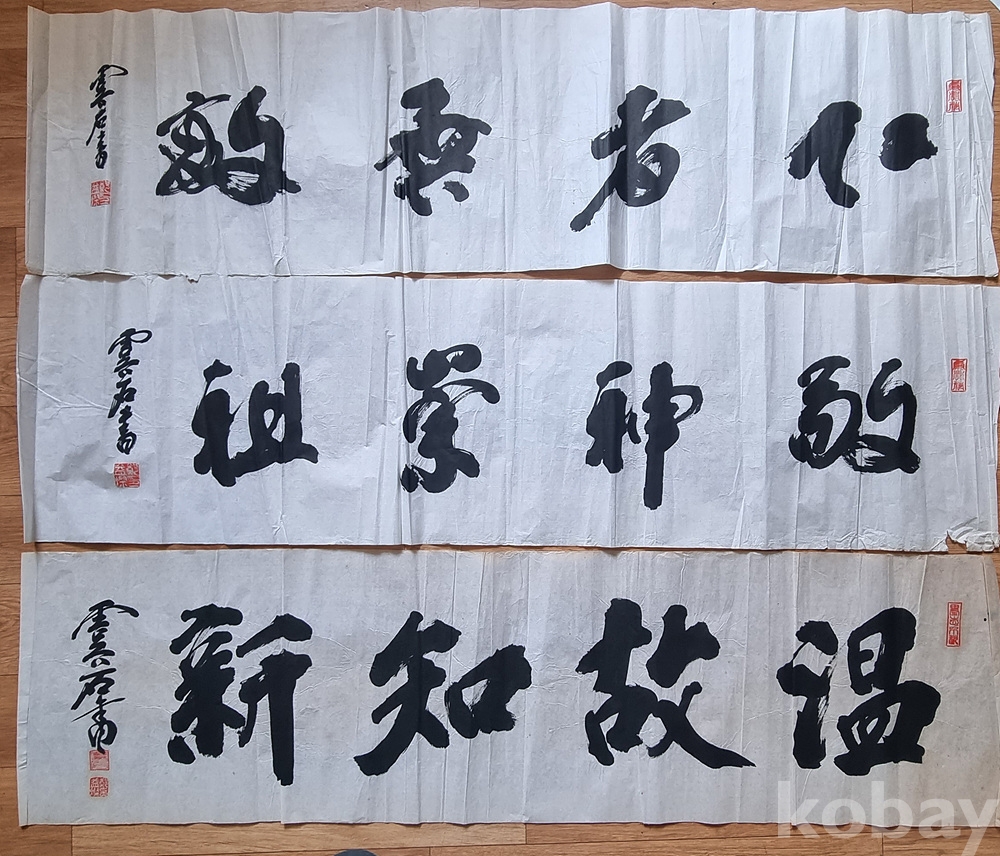 仁者無敵
石書
敬神崇祖
石書
温故知新
石書
kobay